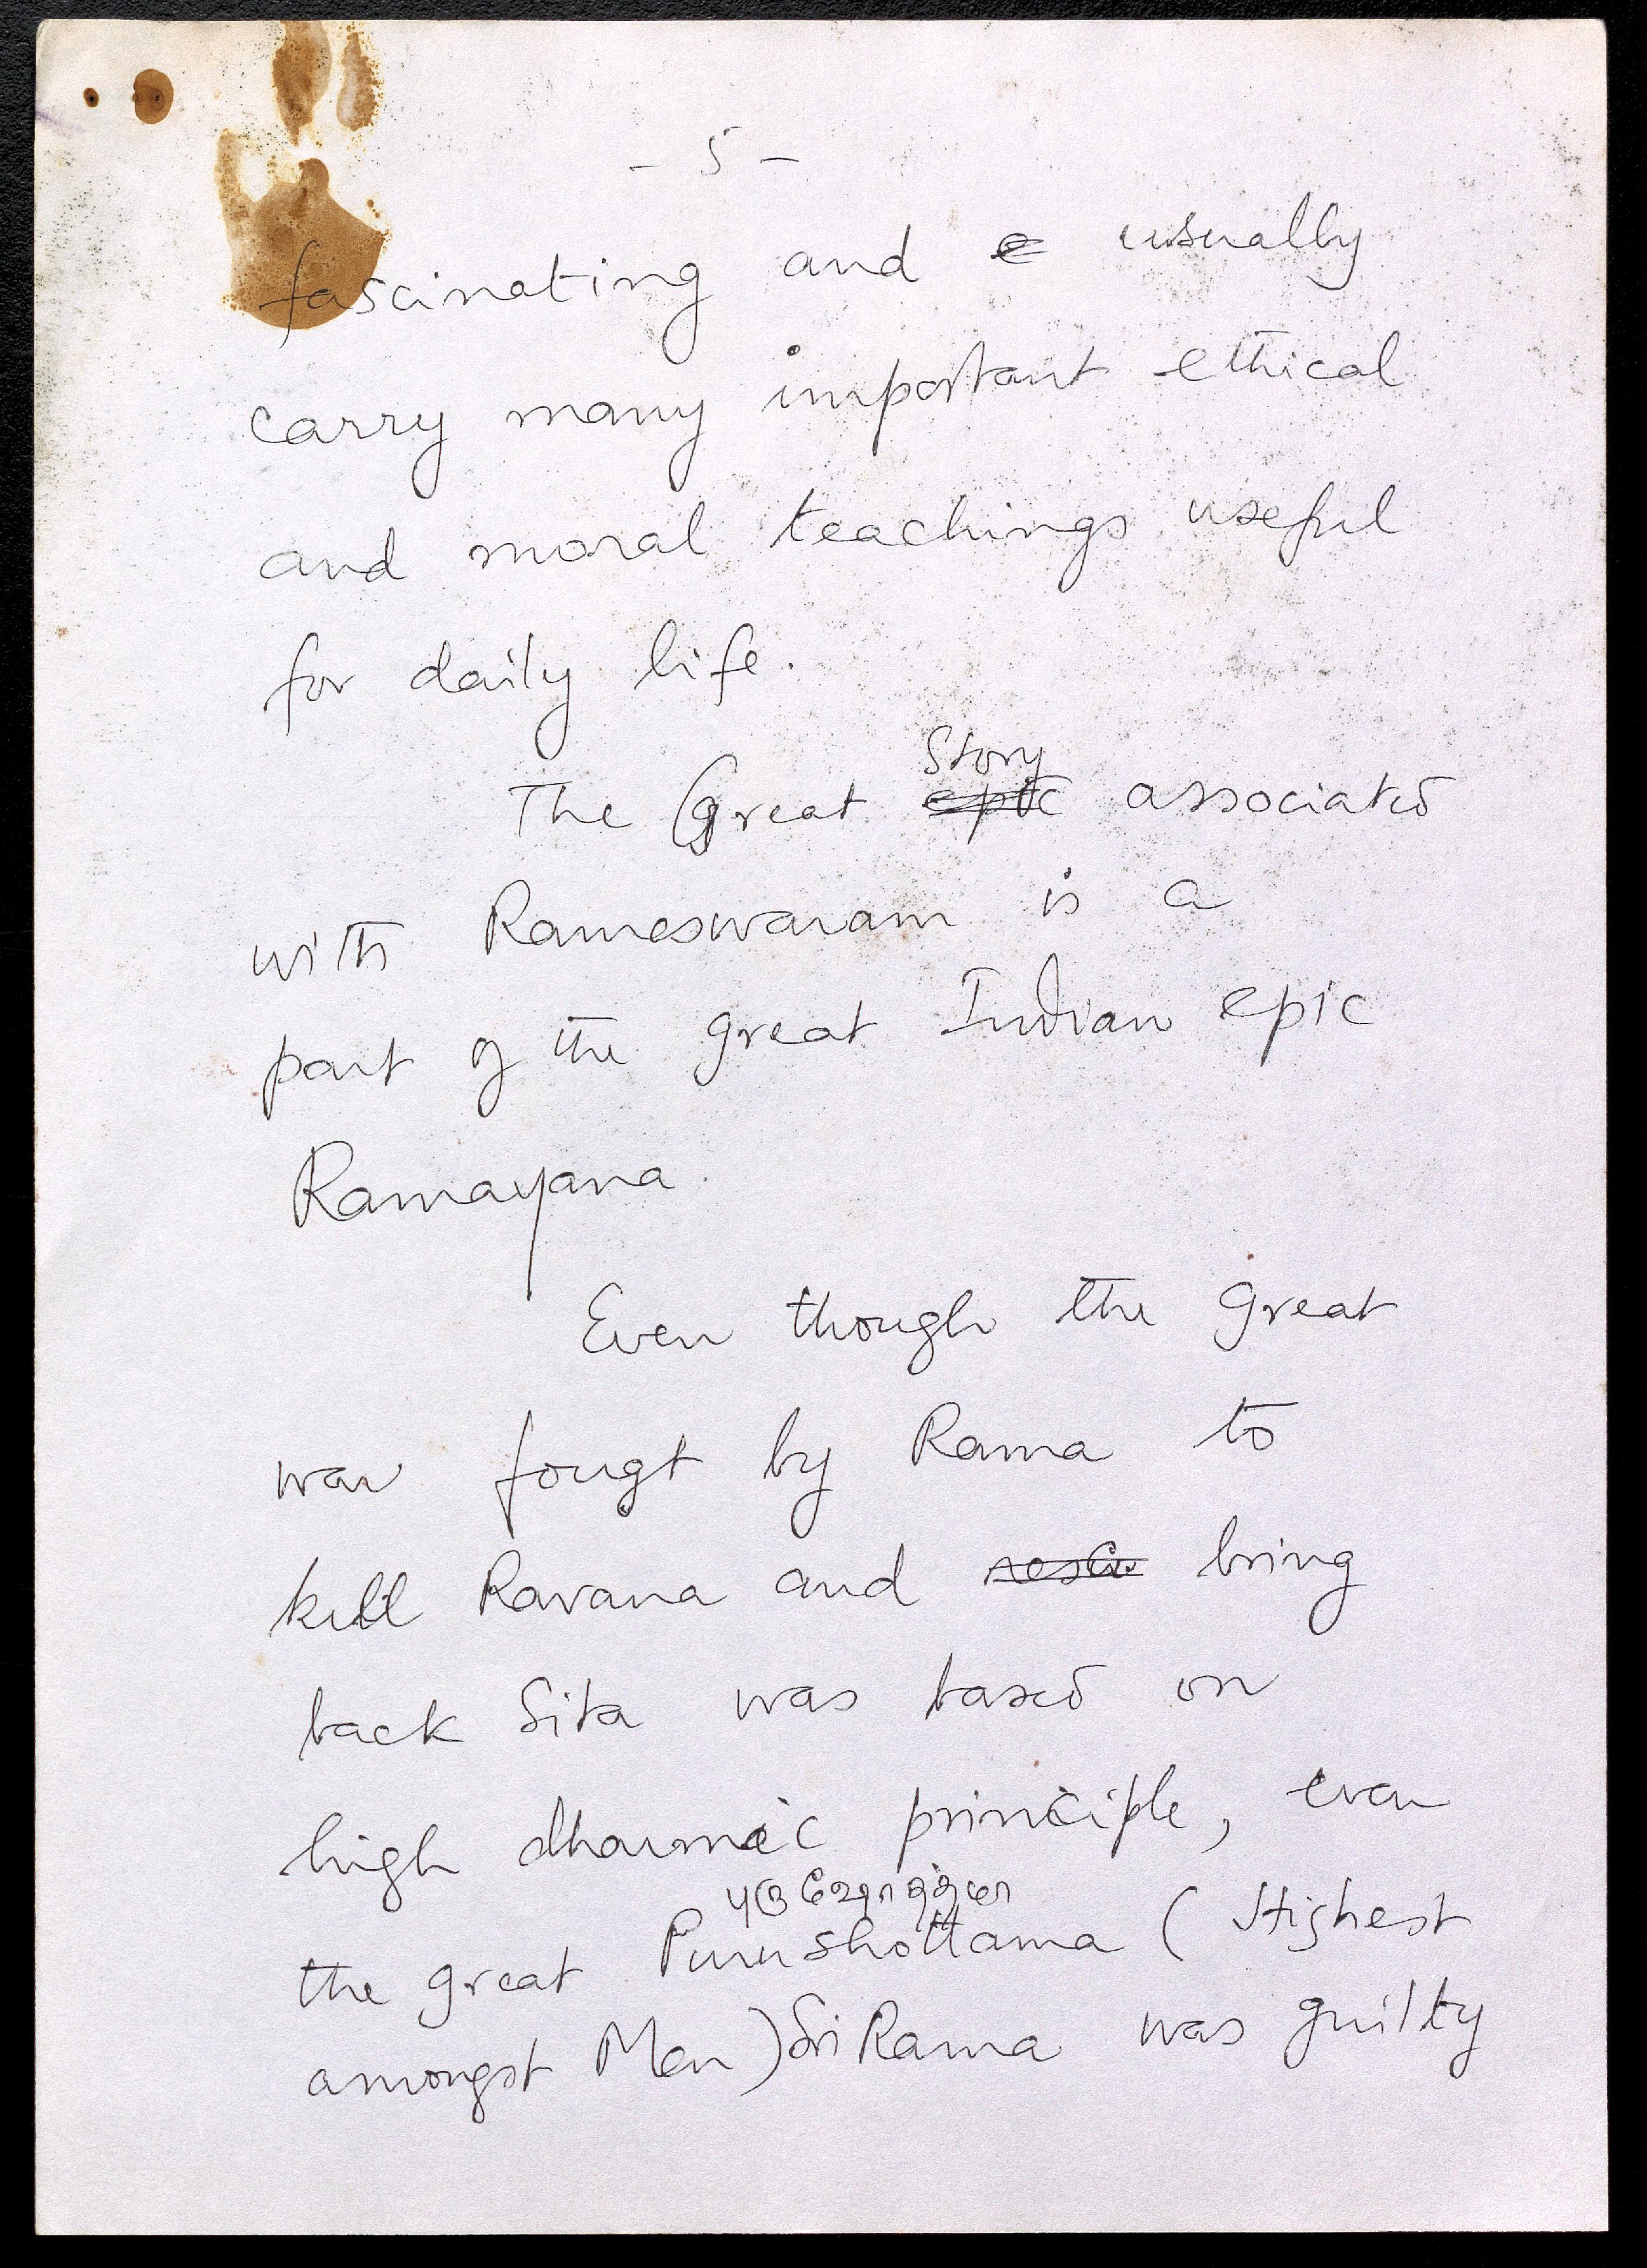 - 5 -
fascinating and e usually
carry many important ethical
and moral teachings useful
for daily life.
Story
The Great epic associated
with Rameswaram is a
part of the great Indian epic
Ramayana.
Even though the great
war fougt by Rama to
kill Ravana and rescu bring
back Sita was based on
high dharmic principle, even
the great Purushottama ( Highest
amongst Men) Sri Rama was guilty